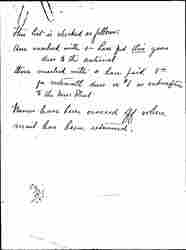 This list is checked as follows:
Ones marked with v- have pd this years
dues to the national
Ones marked with o have paid
for
dues or $1 as subscription
to the News Sheet.
Names have been crossed off where
mail has been returned.